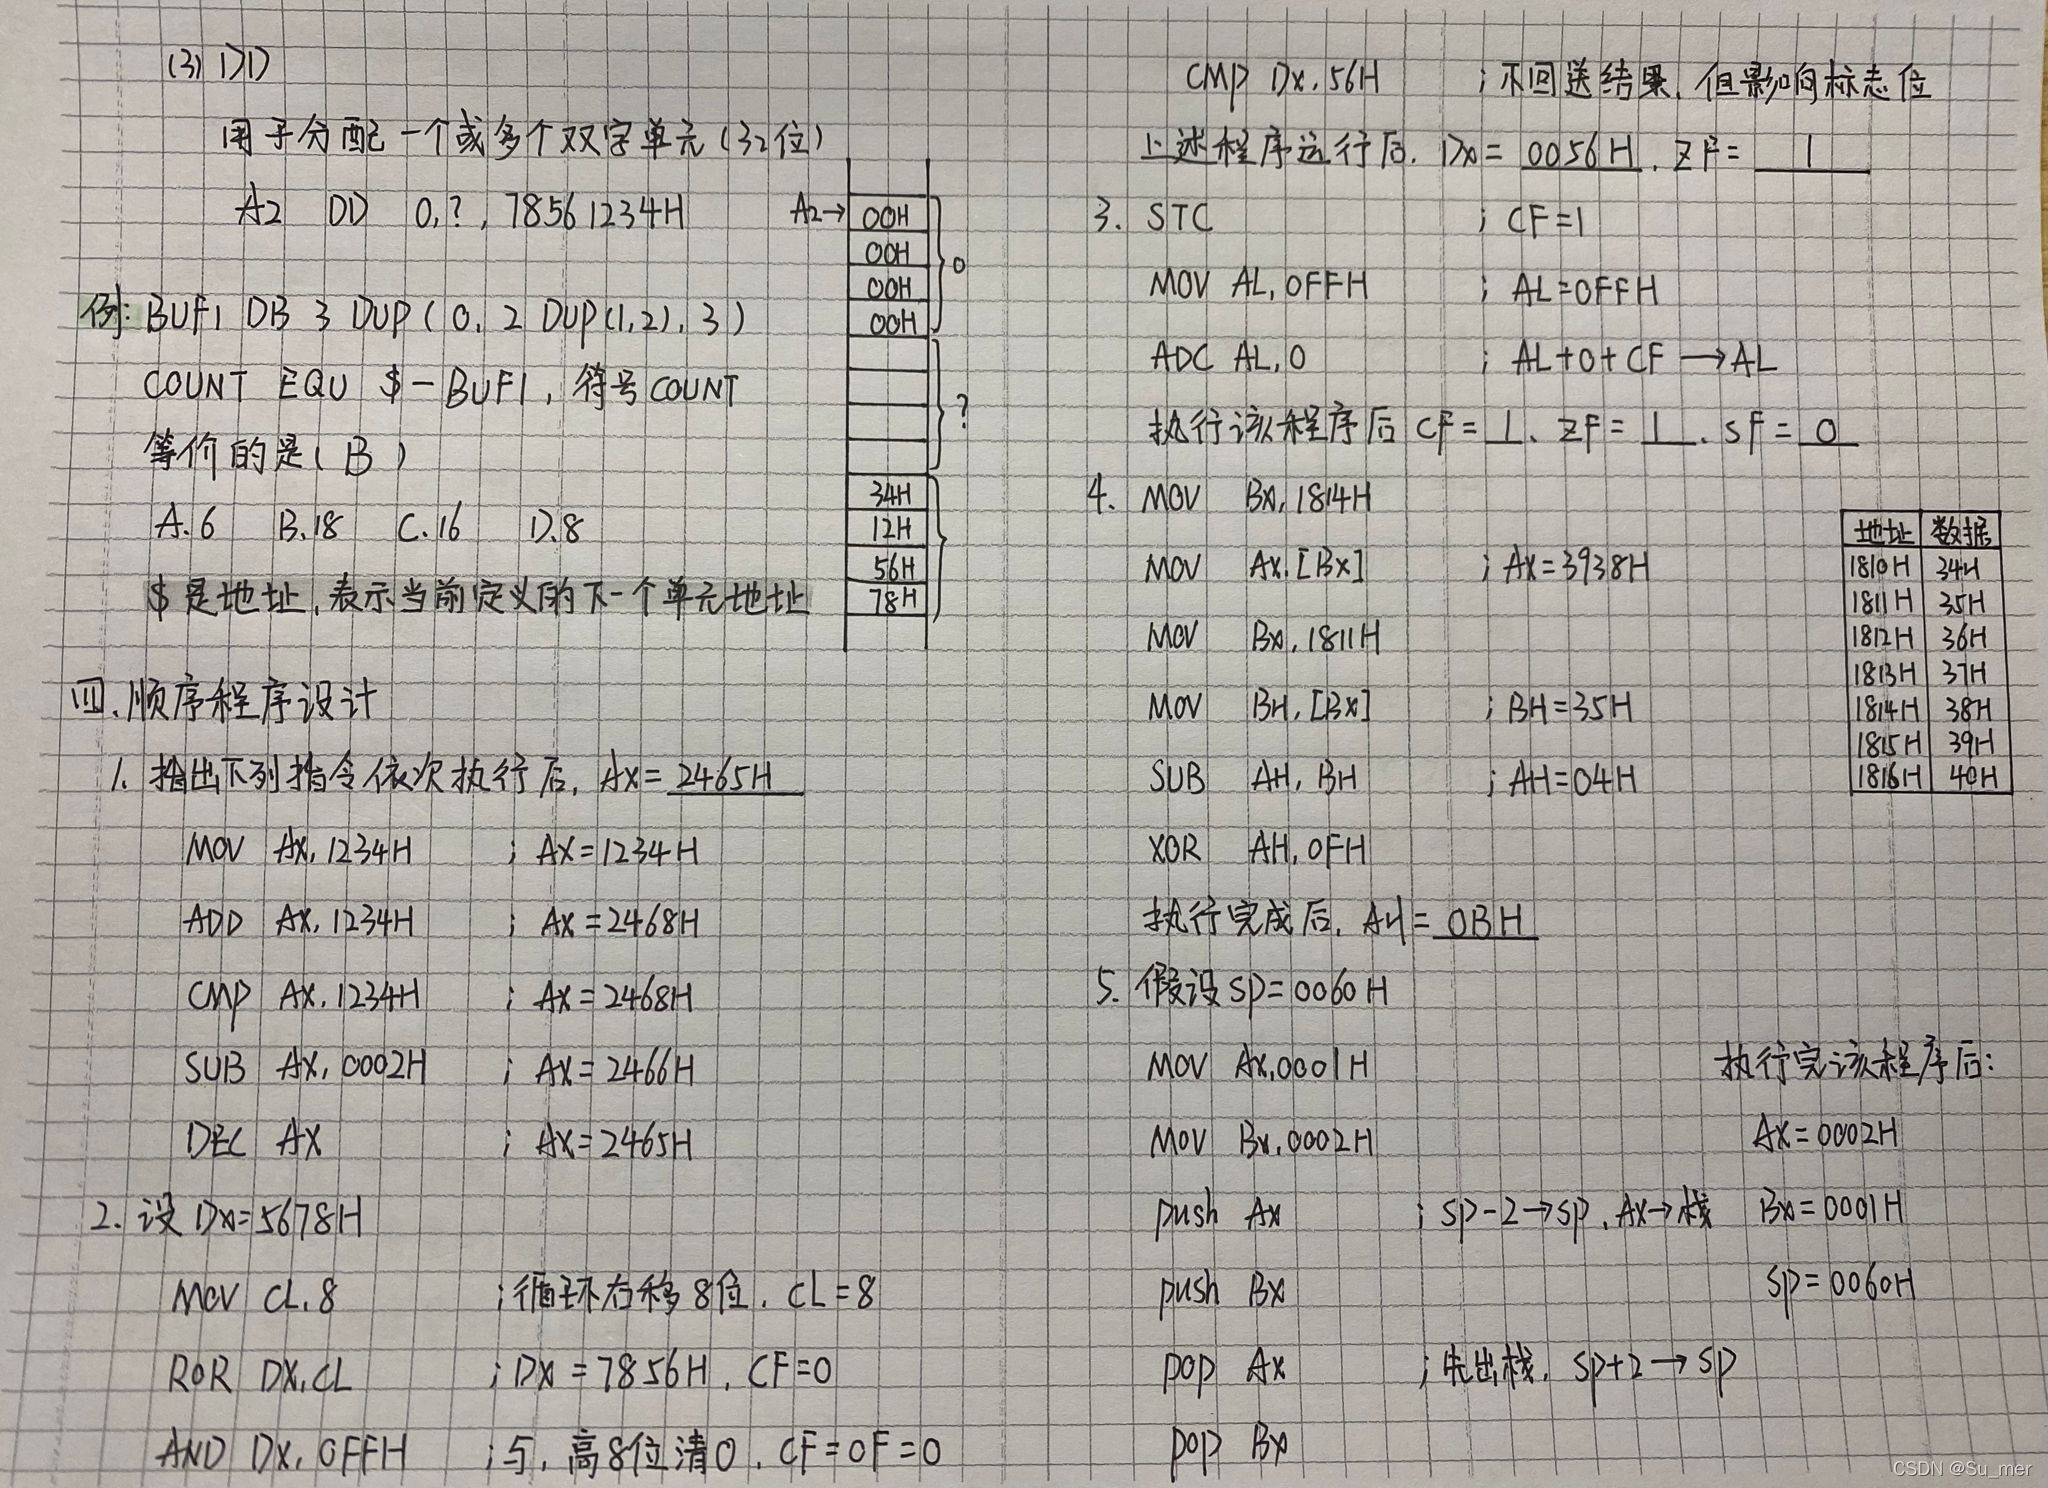 (3) DD
用于分配一个或多个双字单元(32位)
A2 DD 0,?,78561234H
A2→
00H
00H
00H
00H
0
?
34H
12H
56H
78H
例: BUF1 DB 3 DUP(0, 2 DUP(1,2), 3)
COUNT EQU $-BUF1, 符号COUNT
等价的是(B)
A.6 B.18 C.16 D.8
$是地址,表示当前定义的下一个单元地址
四.顺序程序设计
1. 指出下列指令依次执行后, AX=2465H
MOV AX,1234H ; AX=1234H
ADD AX,1234H ; AX=2468H
CMP AX,1234H ; AX=2468H
SUB AX,0002H ; AX=2466H
DEC AX ; AX=2465H
2. 设DX=5678H
MOV CL,8 ;循环右移8位, CL=8
ROR DX,CL ; DX=7856H, CF=0
AND DX,0FFH ;与,高8位清0, CF=OF=0
CMP DX,56H ;不回送结果,但影响标志位
上述程序运行后, DX=0056H, ZF=1
3. STC ; CF=1
MOV AL,0FFH ; AL=0FFH
ADC AL,0 ; AL+0+CF→AL
执行该程序后CF=1, ZF=1, SF=0
4. MOV BX,1814H
MOV AX,[BX] ; AX=3938H
MOV BX,1811H
MOV BH,[BX] ; BH=35H
SUB AH,BH ; AH=04H
XOR AH,0FH
执行完成后, AH=0BH
地址 数据
1810H 34H
1811H 35H
1812H 36H
1813H 37H
1814H 38H
1815H 39H
1816H 40H
5. 假设SP=0060H
MOV AX,0001H
MOV BX,0002H
push AX ; SP-2→SP, AX→栈
push BX
pop AX ;先出栈, SP+2→SP
pop BX
执行完该程序后:
AX=0002H
BX=0001H
SP=0060H
CSDN @Su_mer